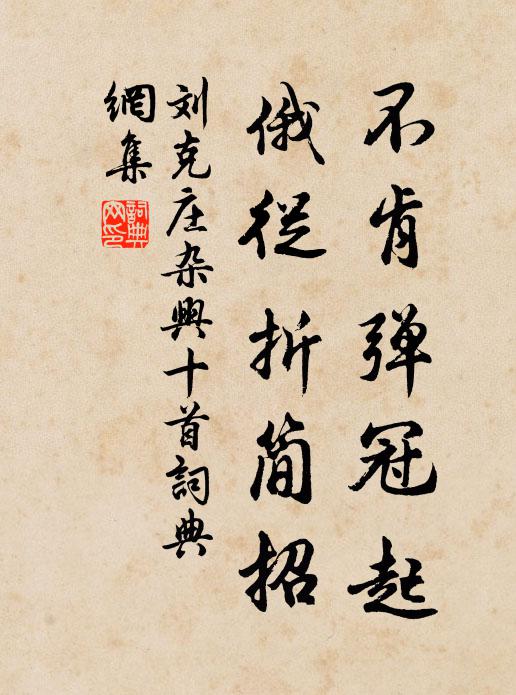 不肯弹冠起
俄從折简招
刘克庄杂興十首詞典
網集
詞典
网印